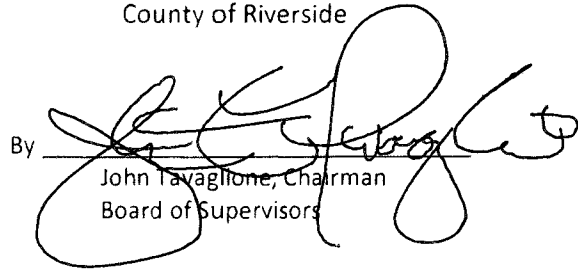 County of Riverside
By
John Tavaglione, Chairman
Board of Supervisors